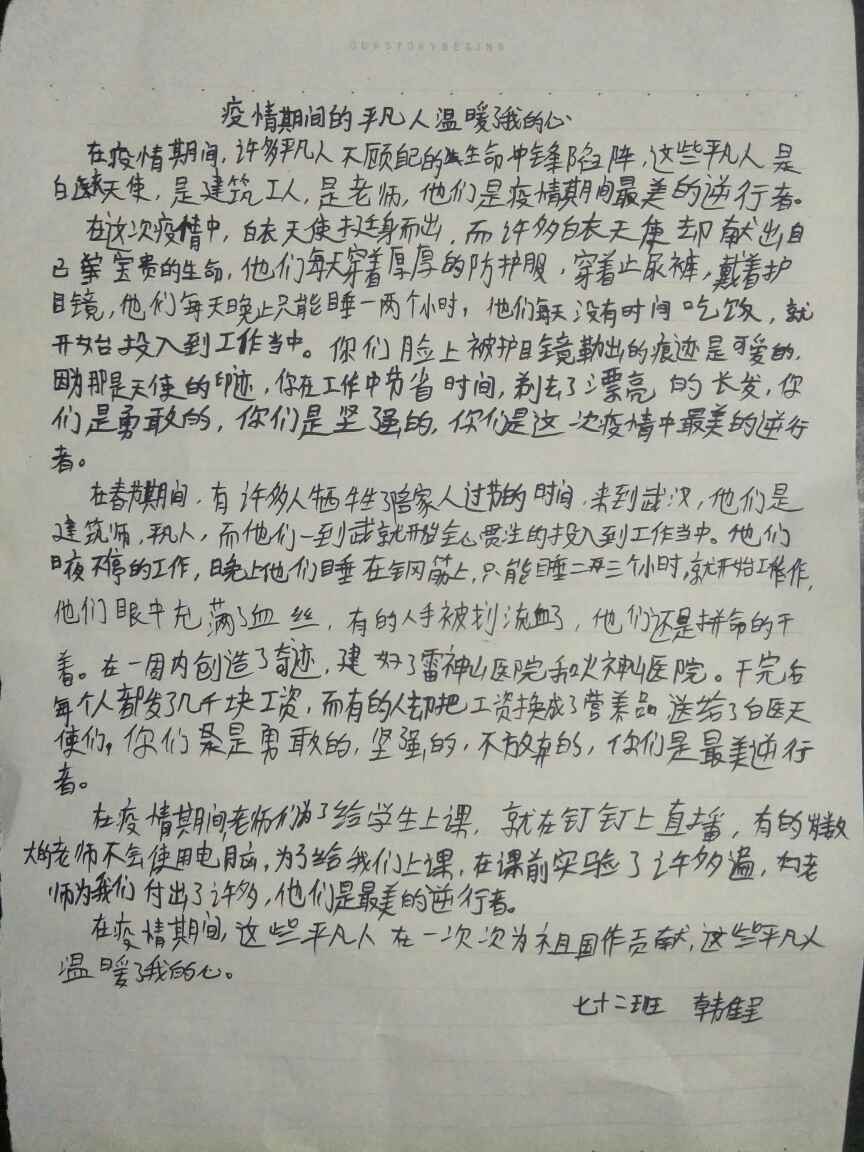 OURSTORYBEGINS
疫情期间的平凡人温暖了我的心
在疫情期间,许多平凡人不顾自己的生命冲锋陷阵,这些平凡人是
白衣天使,是建筑工人,是老师,他们是疫情期间最美的逆行者。
在这次疫情中,白衣天使挺身而出,而许多白衣天使却献出自
己宝贵的生命,他们每天穿着厚厚的防护服,穿着止尿裤,戴着护
目镜,他们每天晚上只能睡一两个小时,他们每天没有时间吃饭,就
开始投入到工作当中。你们脸上被护目镜勒出的痕迹是可爱的,
因为那是天使的印迹,你在工作中节省时间,剃去了漂亮的长发,你
们是勇敢的,你们是坚强的,你们是这一次疫情中最美的逆行
者。
在春节期间,有许多人牺牲了陪家人过节的时间,来到武汉,他们是
建筑师,平凡人,而他们一到武就开始全心贯注的投入到工作当中。他们
日夜不停的工作,晚上他们睡在钢筋上,只能睡二三个小时,就开始工作,
他们眼中充满了血丝,有的人手被划流血了,他们还是拼命的干
着。在一周内创造了奇迹,建好了雷神山医院和火神山医院。干完后
每个人都发了几千块工资,而有的人却把工资换成了营养品送给了白医天
使们,你们是勇敢的,坚强的,不放弃的,你们是最美逆行
者。
在疫情期间,老师们为了给学生上课,就在钉钉上直播,有的岁数
大的老师不会使用电脑,为了给我们上课,在课前实验了许多遍,老
师为我们付出了许多,他们是最美的逆行者。
在疫情期间,这些平凡人在一次次为祖国作贡献,这些平凡人
温暖了我的心。
七十二班 韩